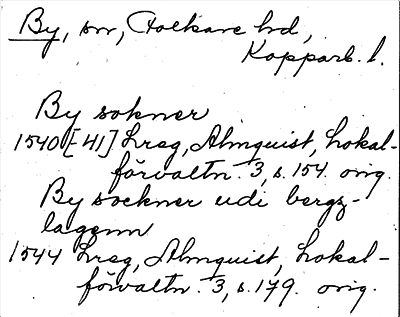 By, sn, Folkare hd,
Kopparb. l.
By sokner
1540[-41] Lreg, Almquist, Lokal-
förvaltn. 3, s. 154. orig.
By sockner udi bergz-
lagenn
1544 Lreg, Almquist, Lokal-
förvaltn. 3, s. 179. orig.